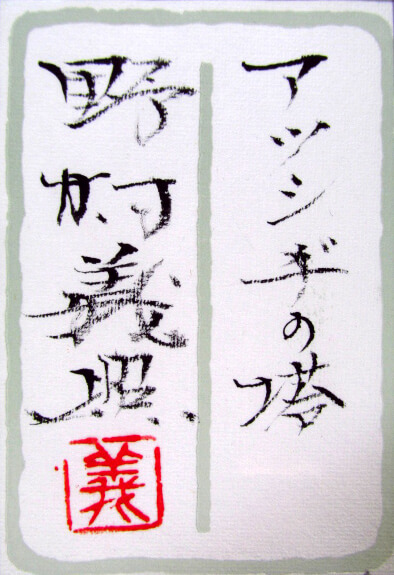 アッシヂの塔
野村義照
義